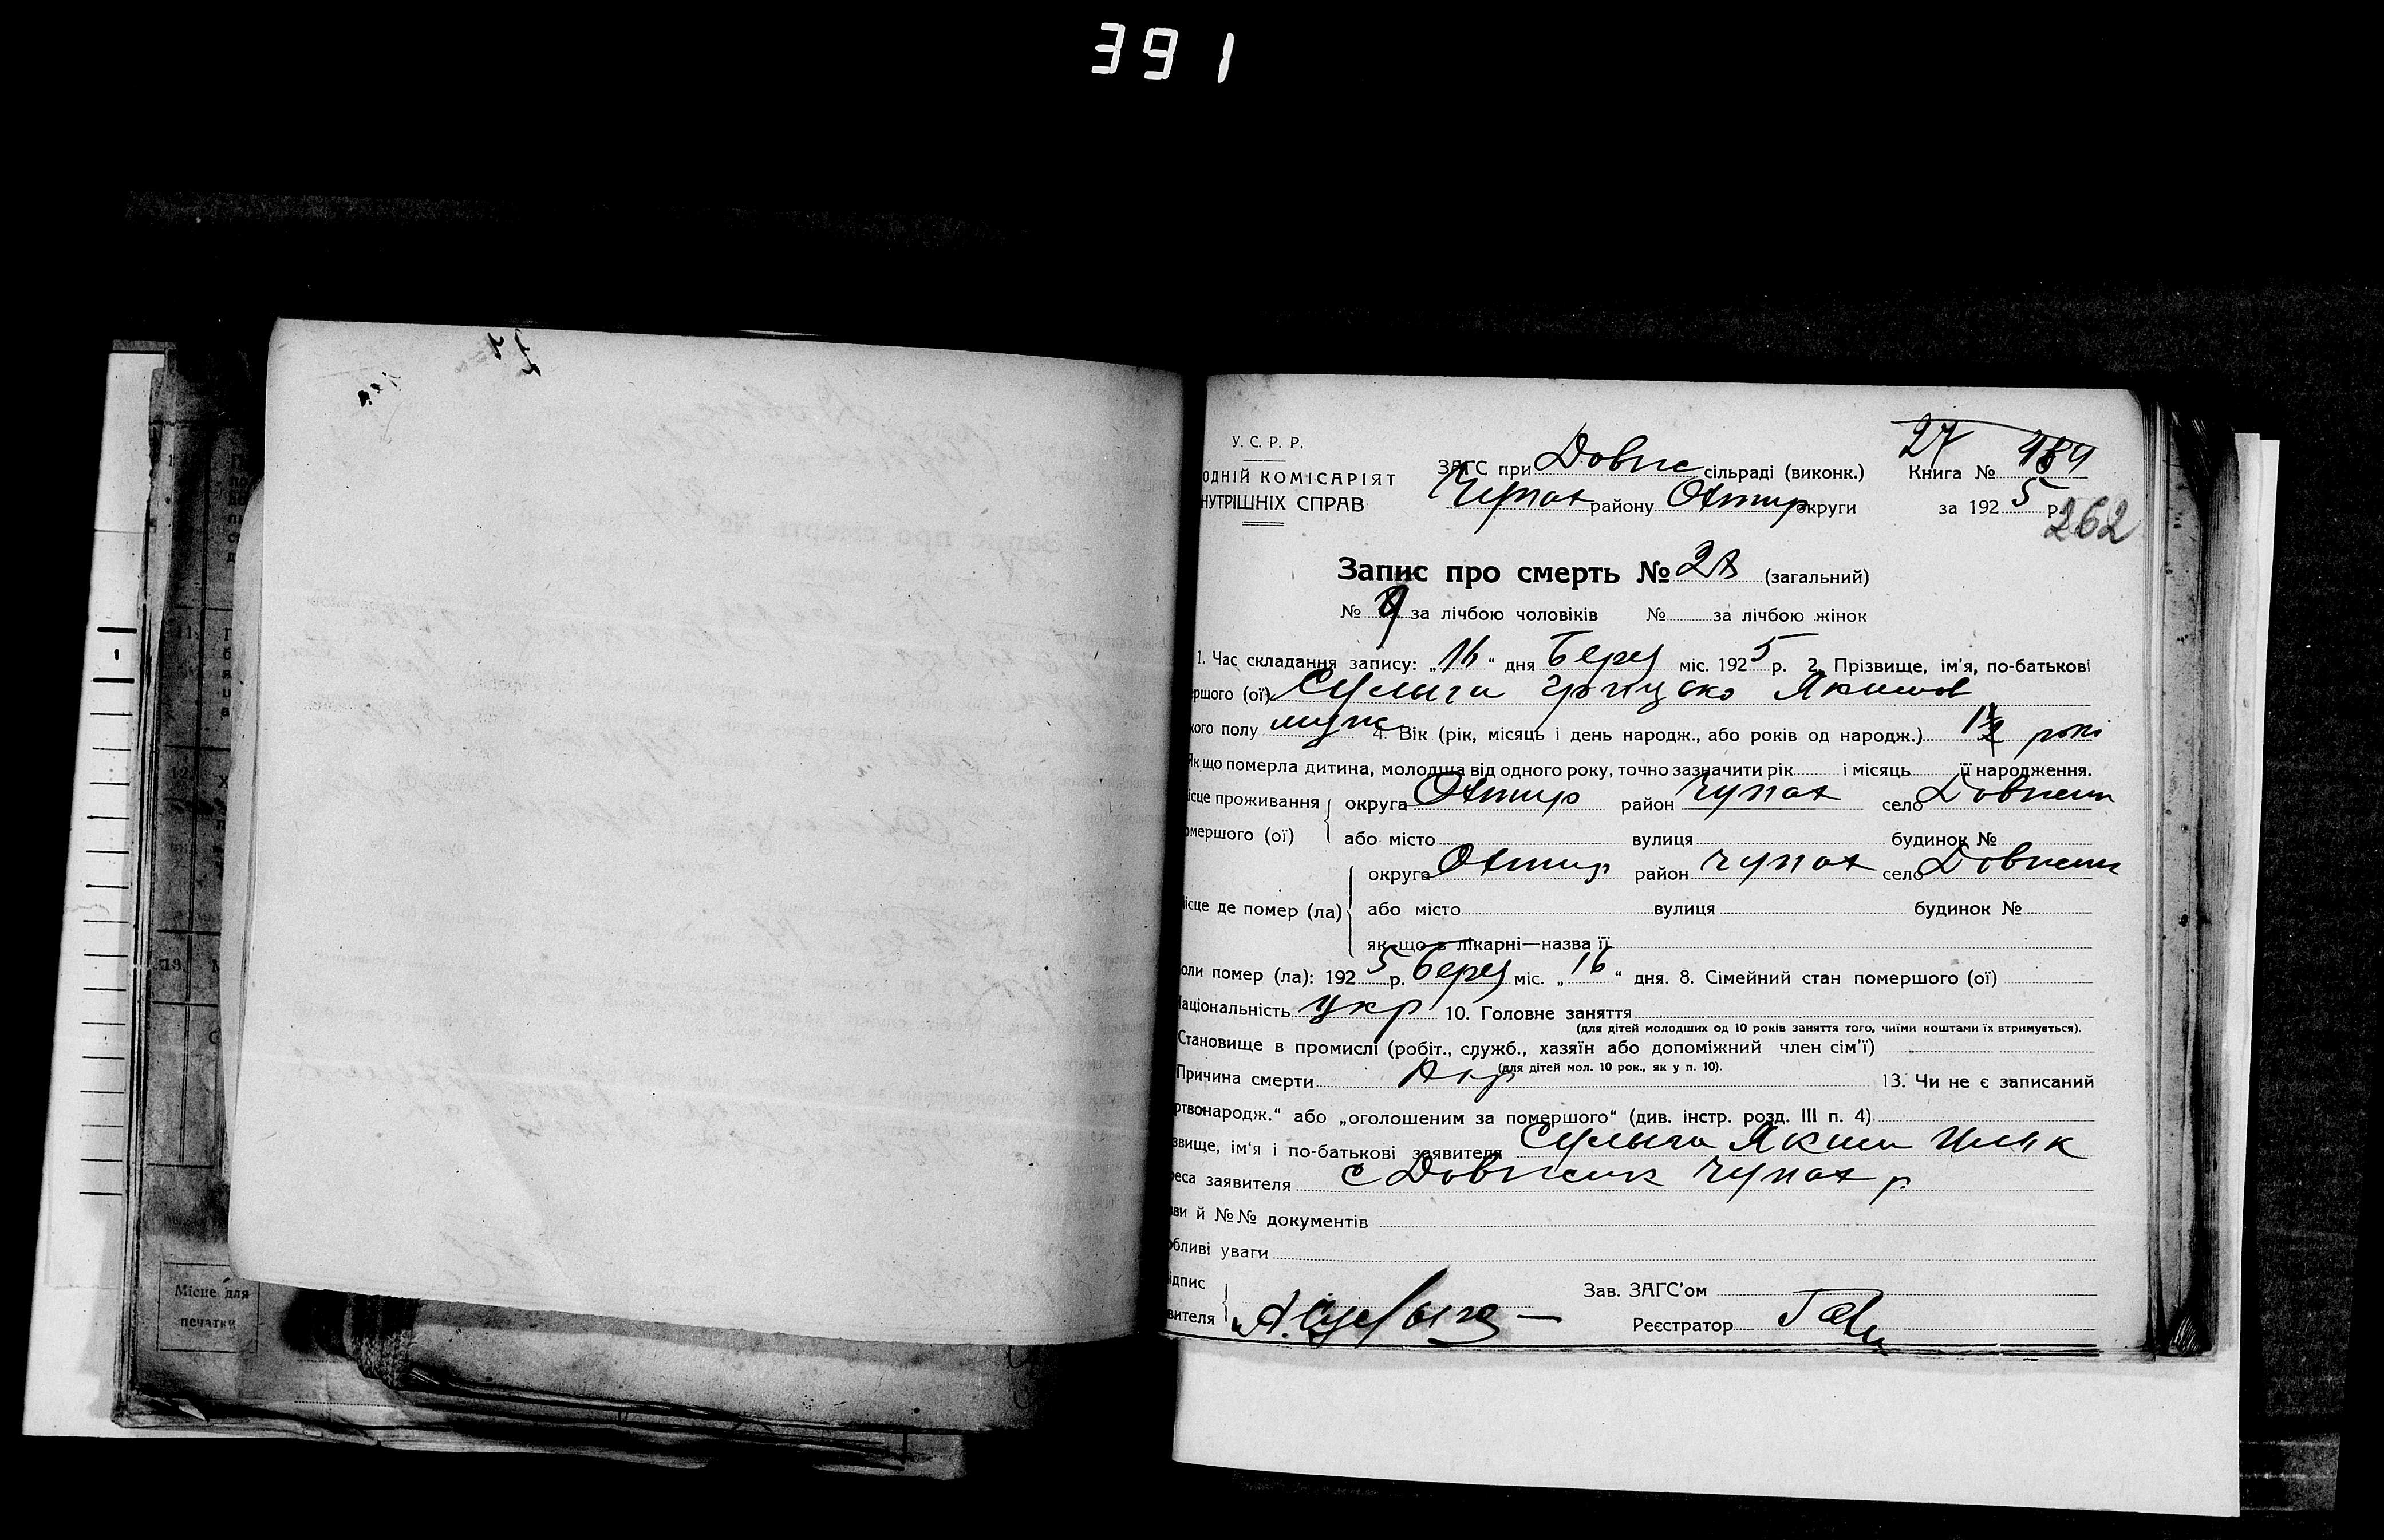 391
У. С. Р. Р.
ОДНІЙ КОМІСАРІЯТ
НУТРІШНІХ СПРАВ
ЗАГС при Довж сільраді (виконк.)
Чупах району Охтир округи
27
Книга №
за 1925 р.
262
Запис про смерть № 28 (загальний)
№ 9 за лічбою чоловіків № за лічбою жінок
1. Час складання запису: „16“ дня Берез міс. 1925 р. 2. Прізвище, ім'я, по-батькові
ршого (ої) Сулыга Грицько Якимов
кого полу муж 4. Вік (рік, місяць і день народж., або років од народж.) рокі
Як що померла дитина, молодша від одного року, точно зазначити рік і місяць її народження.
ісце проживання округа Охтир район Чупах село Довжик
омершого (ої) або місто вулиця будинок №
округа Охтир район Чупах село Довжик
ісце де помер (ла) або місто вулиця будинок №
як що в лікарні—назва її
оли помер (ла): 1925 р. Берез міс. „16“ дня. 8. Сімейний стан помершого (ої)
Національність укр 10. Головне заняття
(для дітей молодших од 10 років заняття того, чиїми коштами їх втримується).
Становище в промислі (робіт., служб., хазяїн або допоміжний член сім'ї)
(для дітей мол. 10 рок., як у п. 10).
Причина смерти 13. Чи не є записаний
ртвонародж.“ або „оголошеним за помершого“ (див. інстр. розд. III п. 4)
звище, ім'я і по-батькові заявителя Сулыга Яким
реса заявителя с Довжик Чупах р.
зви й №№ документів
обливі уваги
ідпис
вителя А. Сулыга
Зав. ЗАГС'ом
Реєстратор
11.
12.
13.
Місце для
печатки
1